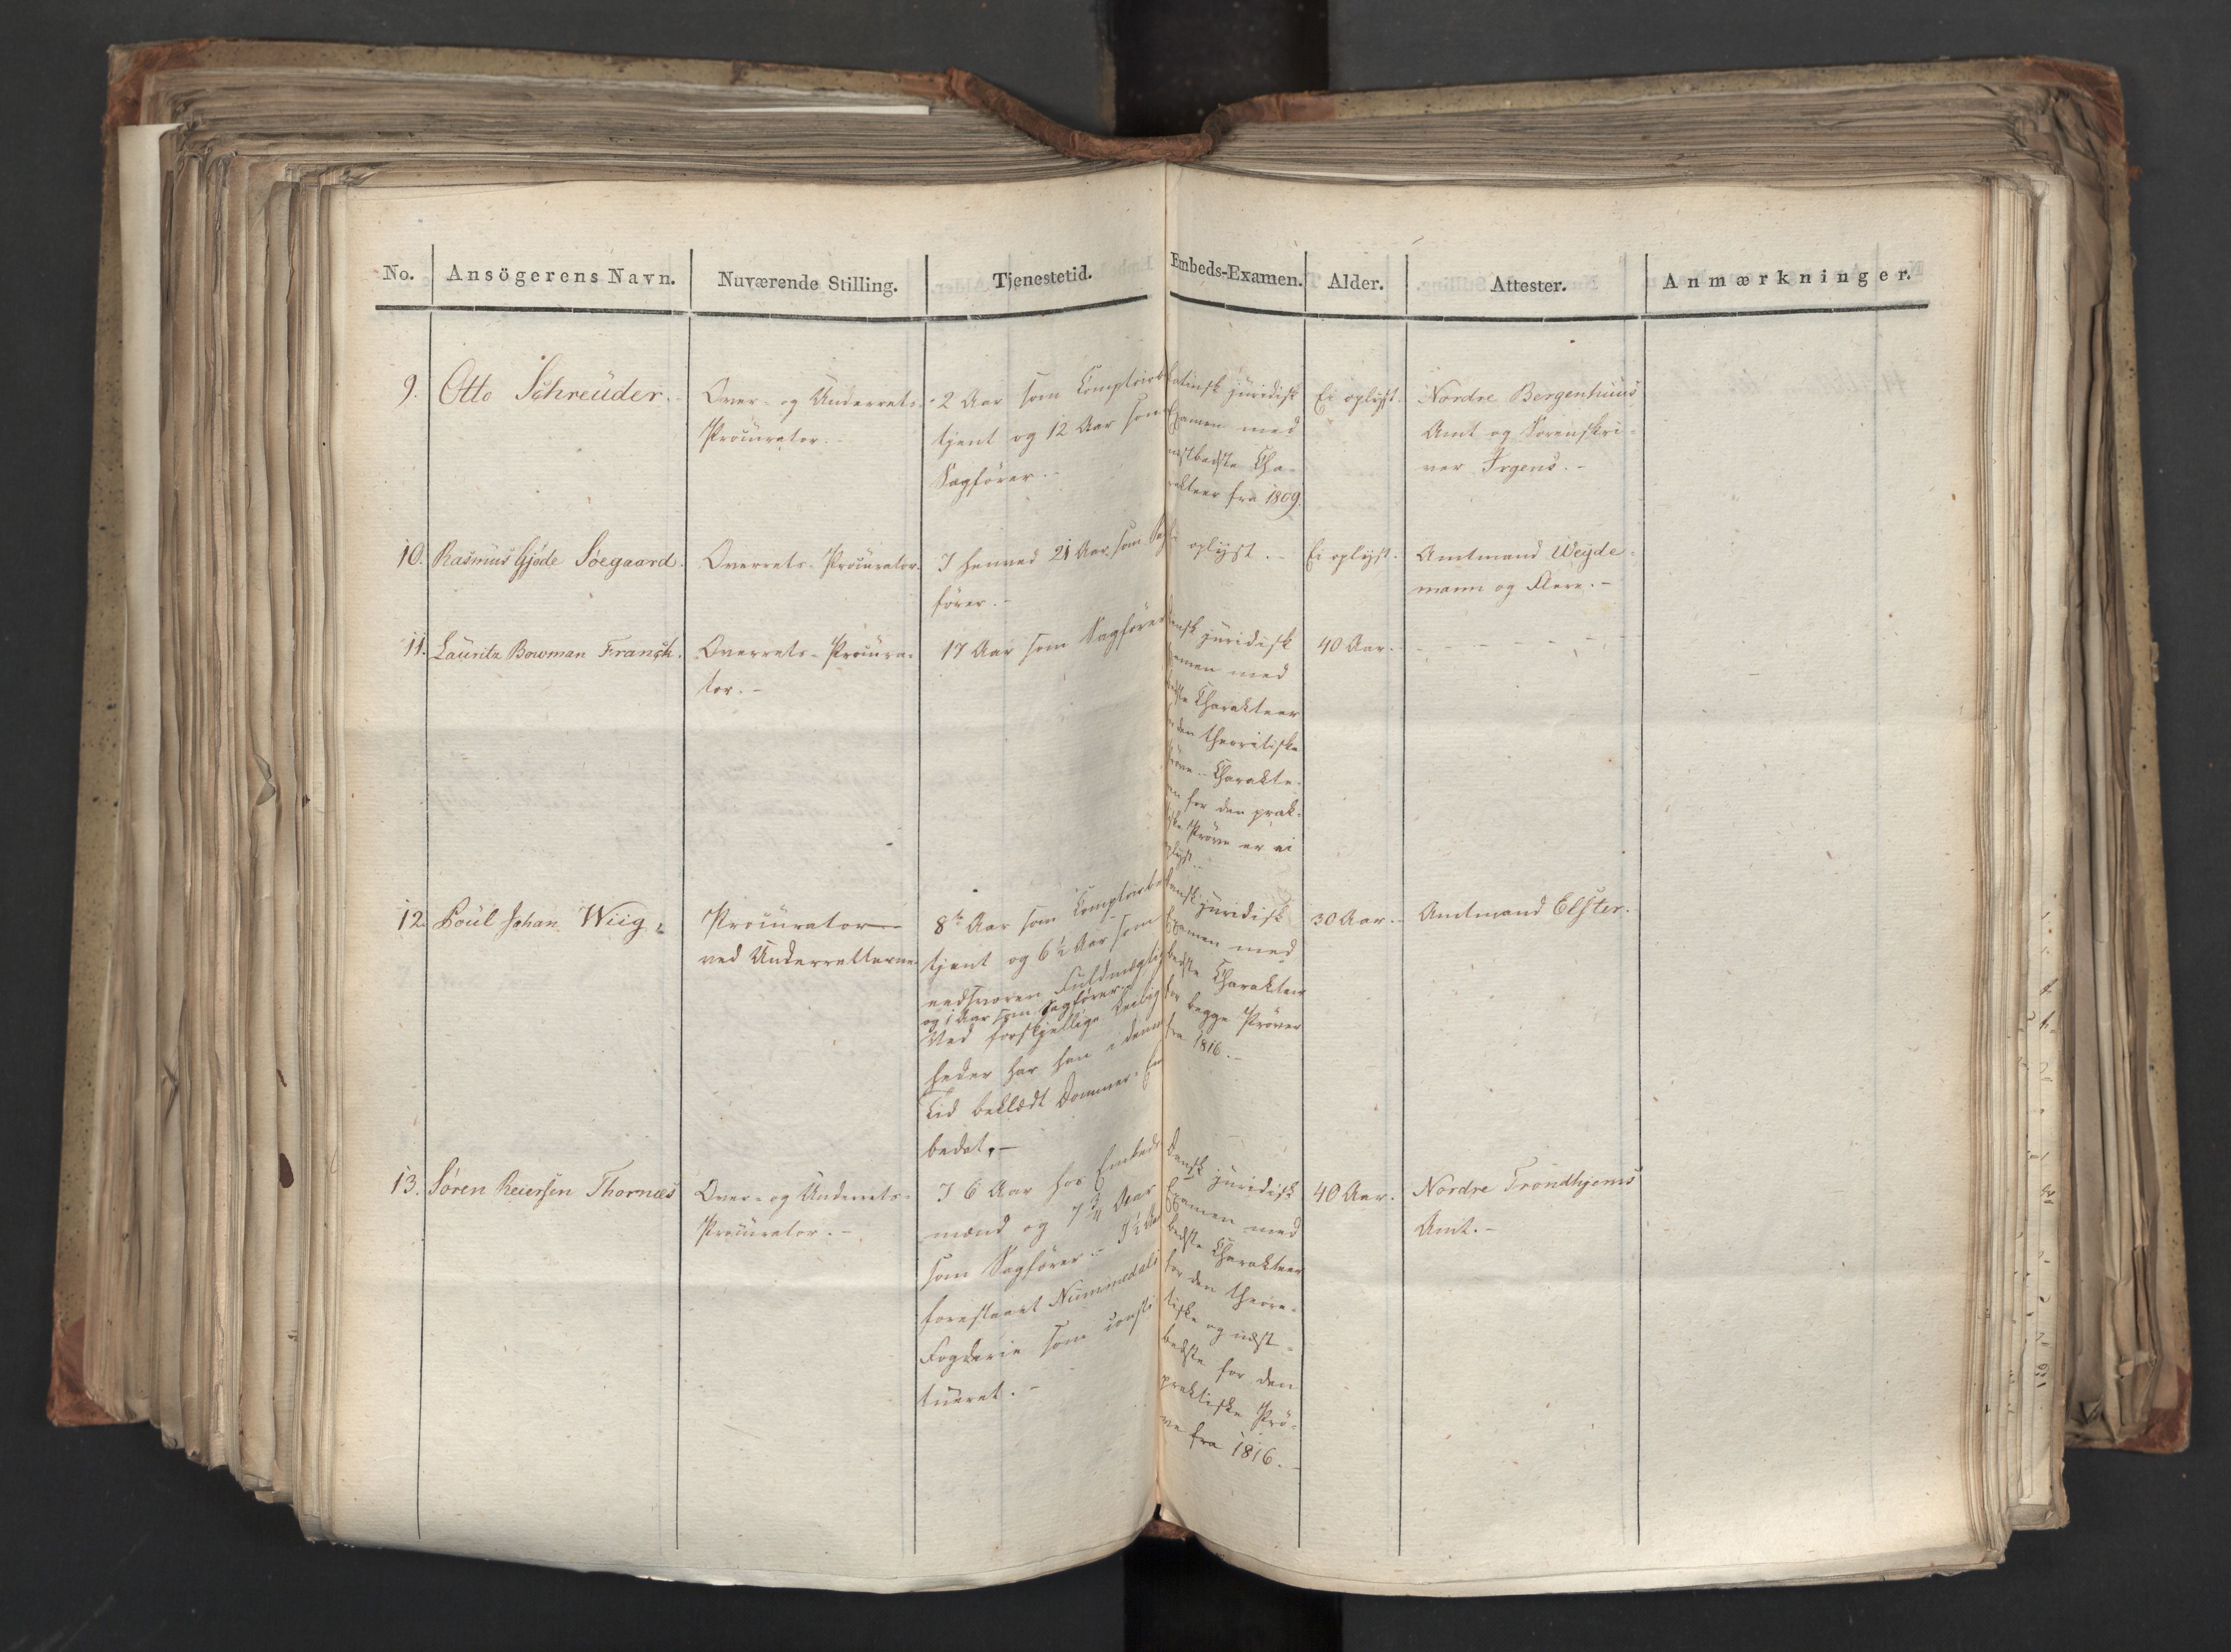 No. Ansögerens Navn. Nuværende Stilling. Tjenestetid. Embeds-Examen. Alder. Attester. Anmærkninger.
9. Otto Schreuder. Over- og Underrets-
Procurator.-
2 Aar som Comptoirbe
tjent og 12 Aar som
Sagfører.-
Latinsk juridisk
Examen med
næstbedste Cha-
rakteer fra 1809.
Ei oplyst.
Nordre Bergenhuus
Amt og Sorenskri-
ver Irgens.-
10. Rasmus Gjøde Søegaard. Overrets-Procurator.
I henved 21 Aar som Sag
fører.-
Ei oplyst.-
Ei oplyst.
Amtmand Weyde-
mann og Flere.-
11. Lauritz Bowman Franck. Overrets-Procura-
tor.-
17 Aar som Sagfører
Dansk juridisk
Examen med
bedste Charakteer
for den theoretiske
Prøve.- Charakte-
ren for den prak-
tiske Prøve er ei
oplyst.-
40 Aar. - - - - -
12. Poul Johan Wiig. Procurator
ved Underretterne
8te Aar som Comptoirbe
tjent og 6½ Aar som
eedsvoren Fuldmægtig
og 1 Aar som Sagfører.
Ved forskjellige Leilig
heder har han i denne
Tid beklædt Dommer-Em
bedet.-
Dansk juridisk
Examen med
bedste Charakteer
for begge Prøver
fra 1816.-
30 Aar.-
Amtmand Elster.
13. Søren Reiersen Thornæs Over- og Underrets-
Procurator.-
I 6 Aar hos Embeds
mænd og 7¾ Aar
som Sagfører.- I ½ Aar
forestaaet Nummedals
Fogderie som consti
tueret.-
Dansk juridisk
Examen med
bedste Charakteer
for den theore-
tiske og næst-
bedste for den
praktiske Prø-
ve fra 1816.-
40 Aar.
Nordre Trondhjems
Amt.-